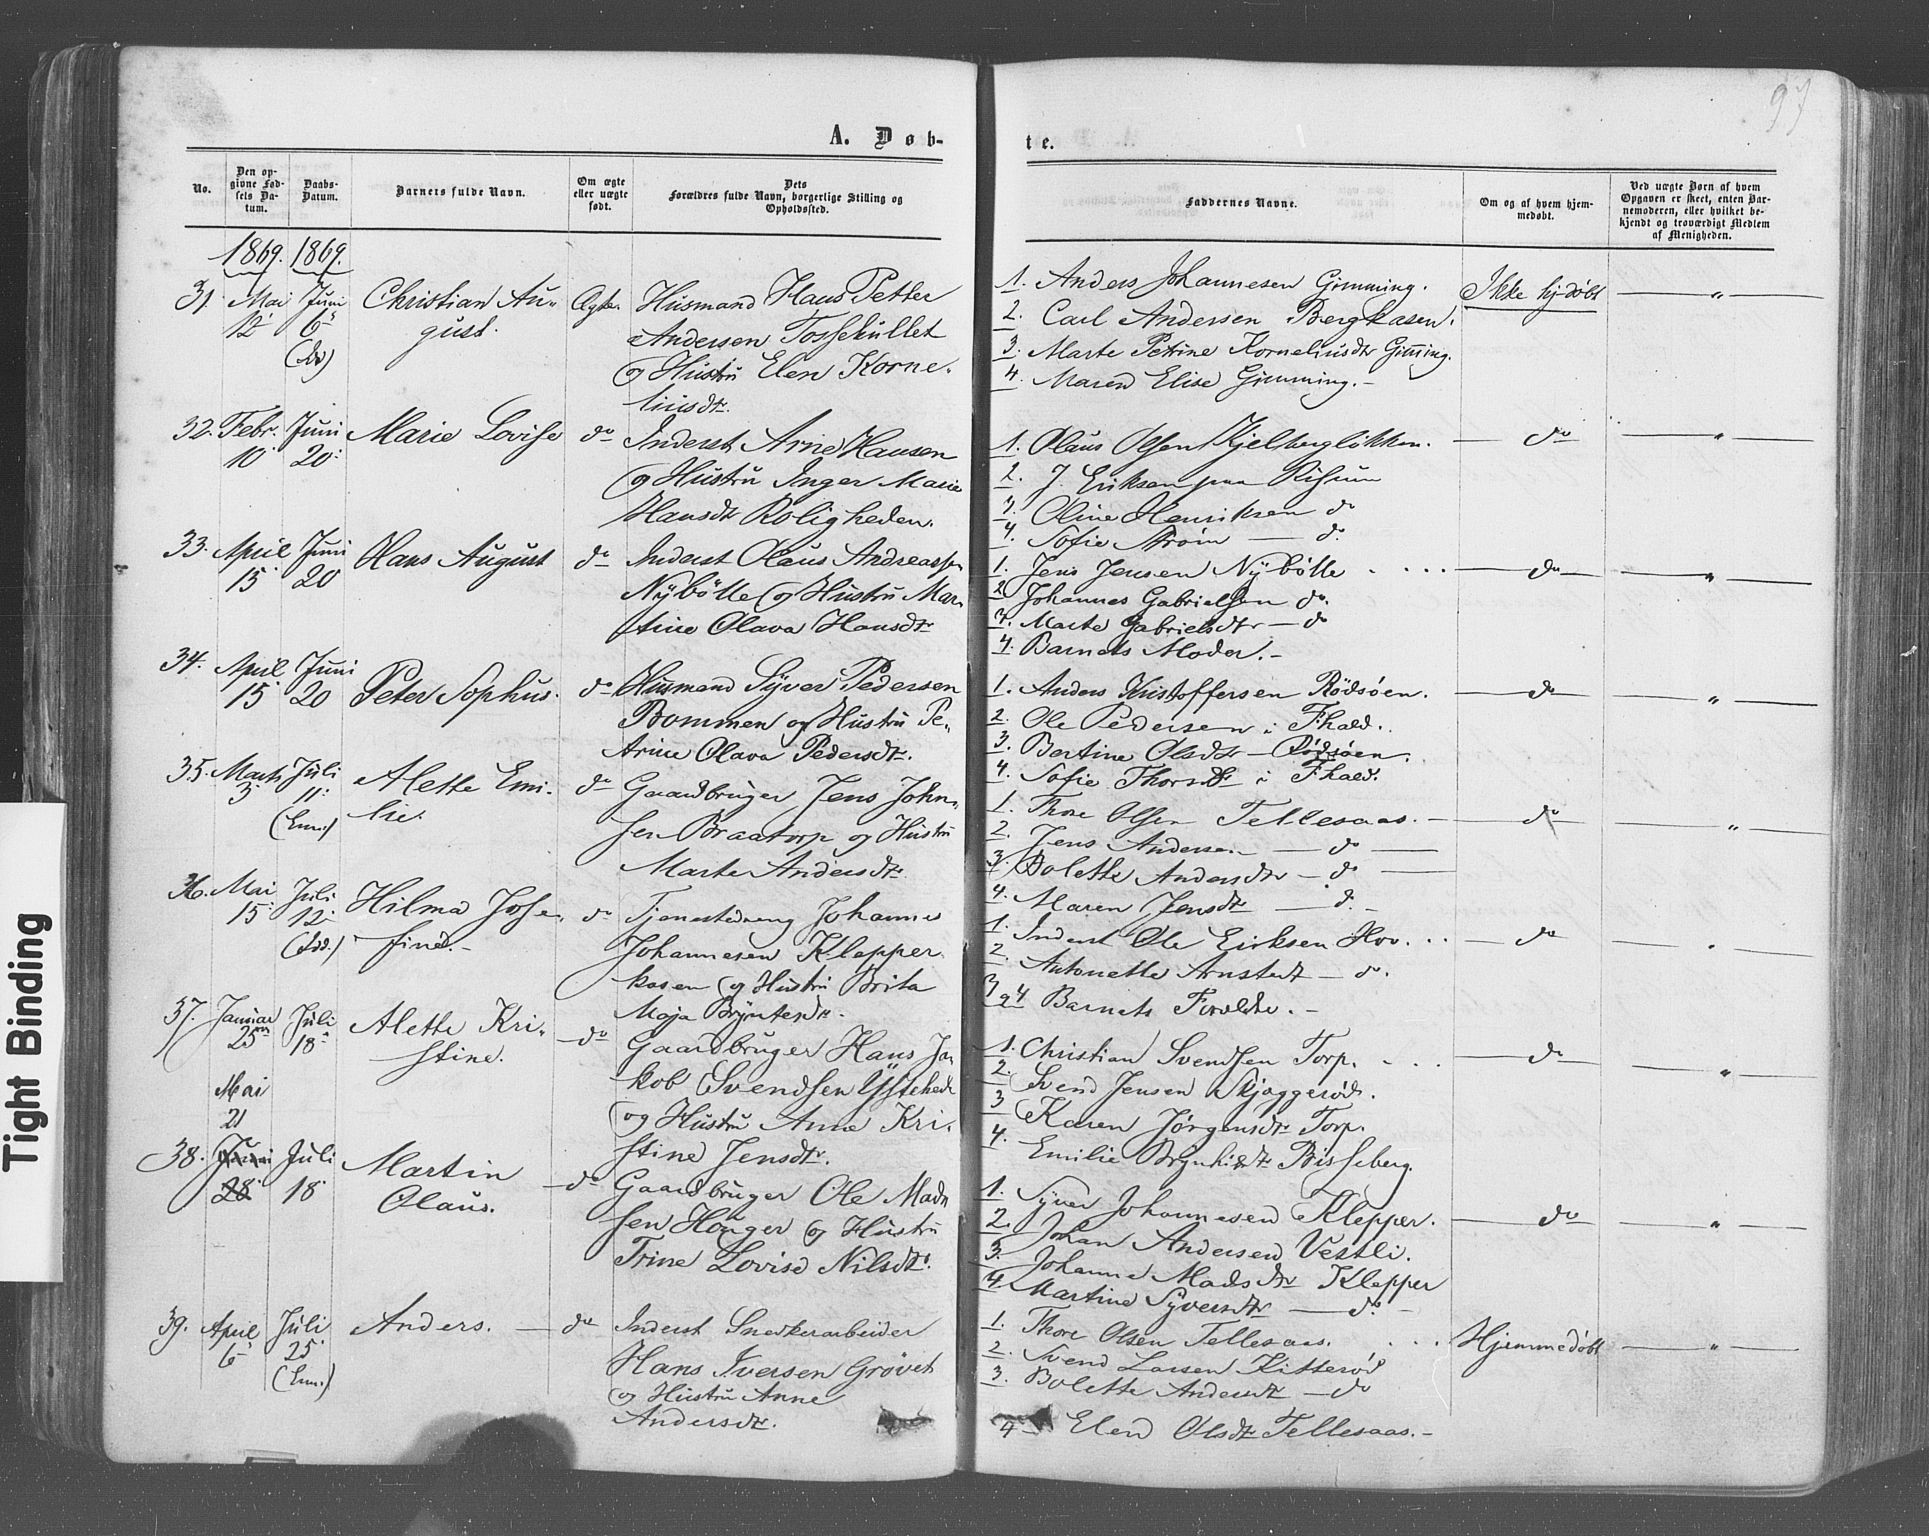 97
A. Døb-
te.
No.
Den op-
givne Fød-
sels Da-
tum.
Daabs-
Datum.
Barnets fulde Navn.
Om ægte
eller uægte
født.
Dets
Forældres fulde Navn, borgerlige Stilling og
Opholdssted.
Faddernes Navne.
Om og af hvem hjem-
medøbt.
Ved uægte Børn af hvem
Opgaven er skeet, enten Bar-
nemoderen, eller hvilket be-
kjendt og troværdigt Medlem
af Menigheden.
1869. 1869.
31. Mai 12 Juni 6
Christian Au-
gust.
Ægte.
Husmand Hans Petter
Andersen Tossekullet
og Hustru Elen Korne-
liusdtr.
1. Anders Johannesen Gimming.
2. Carl Andersen Bergkasen.
3. Marte Petrine Korneliusdtr Gimming.
4. Maren Elise Gimming.-
Ikke hjdøbt — " —
32. Febr. 10 Juni 20
Marie Lovise do
Inderst Arne Hansen
og Hustru Inger Marie
Hansdtr Roligheden.
1. Olaus Olsen Kjelbergløkken.
2. J. Eriksen paa Risum
3. Oline Henriksen do
4. Sofie Strøm — do.
— do — " —
33. April 15 Juni 20
Hans August do
Inderst Olaus Andreassen
Nybølle og Hustru Mar-
tine Olava Hansdtr
1. Jens Jensen Nybølle . . . .
2. Johannes Gabrielsen do.
3. Marte Gabrielsdtr — do
4. Barnets Moder.-
— do — " —
34. April 15 Juni 20
Peter Sophus. do
Husmand Syver Pedersen
Bommen og Hustru Pe-
trine Olava Pedersdtr.
1. Anders Kristoffersen Rödsöen.
2. Ole Pedersen i Fhald.
3. Bertine Olsdtr — Rödsöen.
4. Sofie Thorsdtr i Fhald.
— do — " —
35. Marts 3 Juli 11
(Enn.)
Alette Emi-
lie.
do
Gaardbruger Jens John-
sen Braatorp og Hustru
Marte Andersdtr.
1. Thore Olsen Tellesaas.-
2. Jens Andersen — do —
3. Bolette Andersdtr — do —
4. Maren Jensdtr — do.-
— do — " —
36. Mai 15 Juli 12
(Idd.)
Hilma Jose-
fine.-
do
Tjenestedreng Johannes
Johannesen Klepper-
kasen og Hustru Brita
Maja Bryntesdtr.
1. Inderst Ole Eriksen Hov. . .
2. Antonette Arnstedt — do.
3 og 4 Barnets Forældre.-
— do —
37. Januar 25 Juli 18
Alette Kri-
stine.
do
Gaardbruger Hans Ja-
kob Svendsen Ystehede
og Hustru Anne Kri-
stine Jensdtr.
1. Christian Svendsen Torp.
2. Svend Jensen Skjæggerød.
3 Karen Jørgensdtr Torp.
4. Emilie Brynhildtr Bisseberg.
— do — " —
Mai
21
38. Juli
28 18
Martin
Olaus.
do
Gaardbruger Ole Mad-
sen Houger og Hustru
Trine Lovise Nilsdtr.
1. Syver Johannesen Klepper.
2. Johan Andersen Vestli.
3. Johanne Madsdtr Klepper
4. Martine Syversdtr — do. -
— do — " —
39. April 6 Juli 25
(Enn.)
Anders. — do
Inderst Snedkerarbeider
Hans Iversen Grøvet
og Hustru Anne
Andersdtr.
1. Thore Olsen Tellesaas.
2. Svend Larsen Kitterød
3. Bolette Andersdtr — do
4 — Elen Olsdtr Tellesaas.-
Hjemmedøbt — " —
Tight Binding